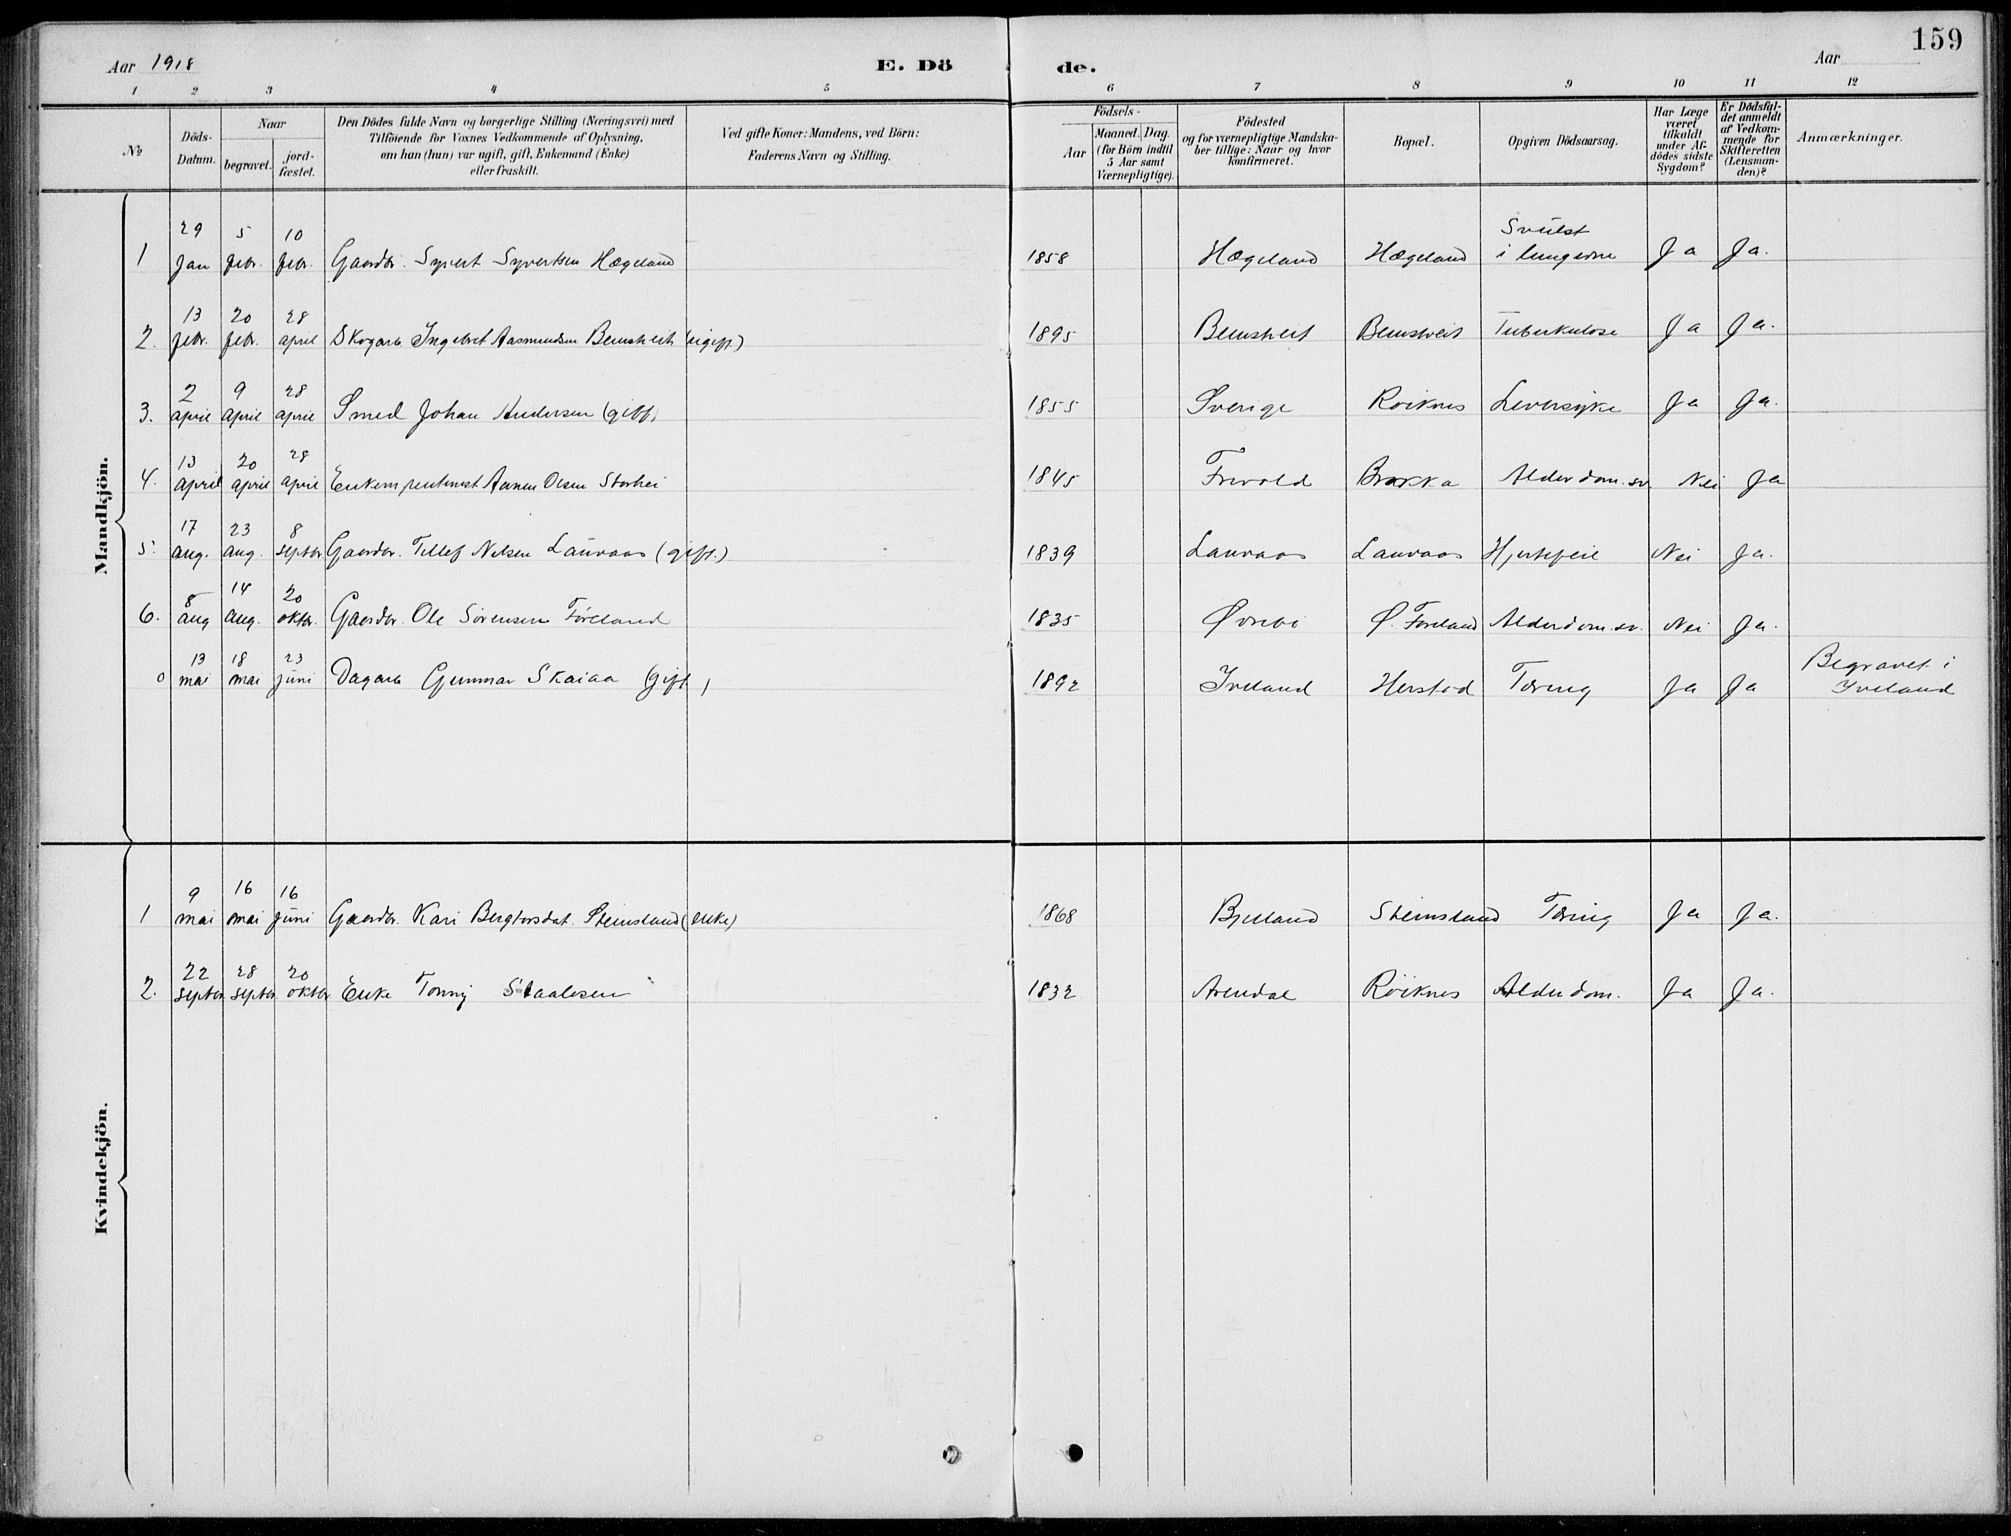 159
Aar 1918
E. Dö
de.
Aar
1 2 3 4 5 6 7 8 9 10 11 12
№
Döds-Datum.
Naar
begravet.
jord-fæstet.
Den Dödes fulde Navn og borgerlige Stilling (Næringsvei) med
Tilföiende for Voxnes Vedkommende af Oplysning,
om han (hun) var ugift, gift, Enkemand (Enke)
eller fraskilt.
Ved gifte Koner: Mandens, ved Börn:
Faderens Navn og Stilling.
Födsels-
Aar
Maaned. Dag.
(for Börn indtil
5 Aar samt
Værnepligtige).
Födested
og for værnepligtige Mandska-
ber tillige: Naar og hvor
konfirmeret.
Bopæl.
Opgiven Dödsaarsag.
Har Læge
været
tilkaldt
under Af-
dödes sidste
Sygdom?
Er Dödsfal-
det anmeldt
af Vedkom-
mende for
Skifteretten
(Lensman-
den)?
Anmærkninger.
Mandkjön.
1 29 Jan 5 febr. 10 febr. Gaardbr. Syvert Syvertsen Hægeland 1858 Hægeland Hægeland Svulst i lungerne Ja Ja.
2. 13 febr. 20 febr. 28 april Skogarb Ingebret Aasmundsen Bemstveit (ugift) 1895 Bemstveit Bemstveit Tuberkulose Ja Ja.
3. 2 april 9 april 28 april Smed Johan Andersen (gift) 1855 Sverige Röiknes Leversyke Ja Ja.
4. 13 april 20 april 28 april Enkem. Aanen Olsen Storhei 1845 Frivold Brokka Alderdom.sv. Nei Ja
5. 17 aug. 23 aug. 8 septbr. Gaardbr. Tellef Nilsen Lauvaas (gift.) 1839 Lauvaas Lauvaas Hjertefeil Nei Ja.
6. 8 aug 14 aug. 20 oktbr. Gaardbr. Ole Sørensen Föreland 1835 Øvrebö Ø. Föreland Alderdom.sv. Nei Ja.
0 13 mai 18 mai 23 juni Dagarb Gunnar Skaiaa (gift) 1892 Iveland Herstad Tæring Ja Ja Begravet i Iveland
Kvindekjön.
1 9 mai 16 mai 16 juni Gaardbr. Kari Bergtorsdat. Steinsland (enke) 1868 Bjelland Steinsland Tæring Ja Ja.
2. 22 septbr. 28 septbr. 20 oktbr. Enke Tonny Staalesen 1832 Arendal Röiknes Alderdom. Ja Ja.